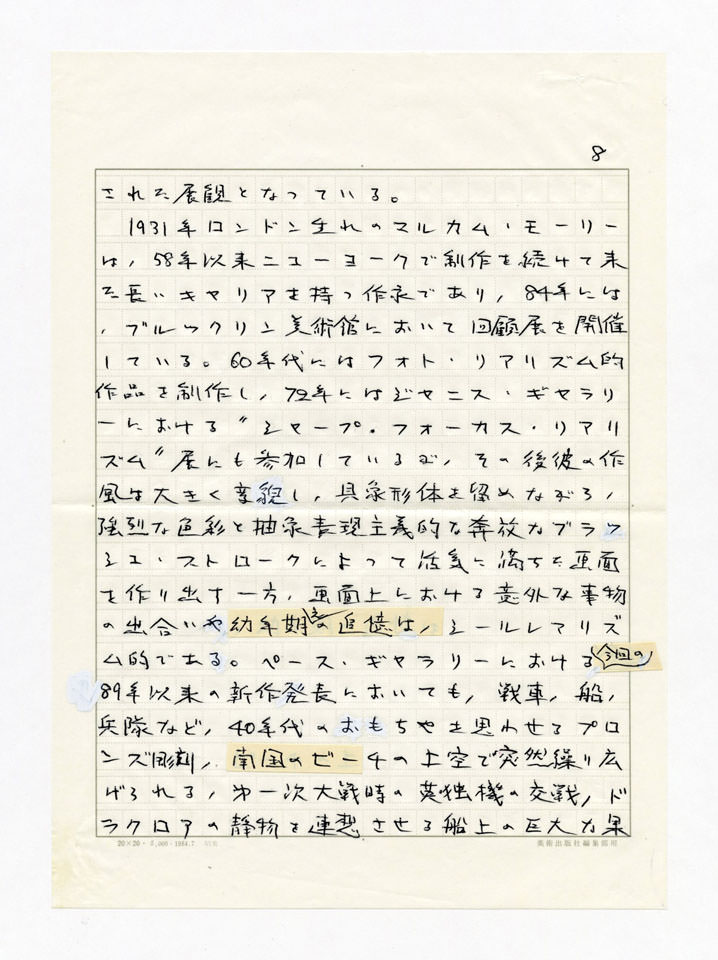 8
された展観となっている。
1931年ロンドン生れのマルカム・モーリー
は，58年以来ニューヨークで制作を続けて来
た長いキャリアを持つ作家であり，84年には
，ブルックリン美術館において回顧展を開催
している。60年代にはフォト・リアリズム的
作品を制作し，72年にはジャニス・ギャラリ
ーにおける〝シャープ・フォーカス・リアリ
ズム〟展にも参加しているが，その後彼の作
風は大きく変貌し，具象形体を留めながら，
強烈な色彩と抽象表現主義的な奔放なブラッ
シュ・ストロークによって活気に満ちた画面
を作り出す一方，画面上における意外な事物
の出合いや幼年期への追憶は，シールレアリズ
ム的である。ペース・ギャラリーにおける今回の
89年以来の新作発表においても，戦車，船，
兵隊など，40年代のおもちゃを思わせるブロ
ンズ彫刻，南国のビーチの上空で突然繰り広
げられる，第一次大戦時の英独機の交戦，ド
ラクロアの静物を連想させる船上の巨大な果
20×20・5,000・1984.7
美術出版社編集部用